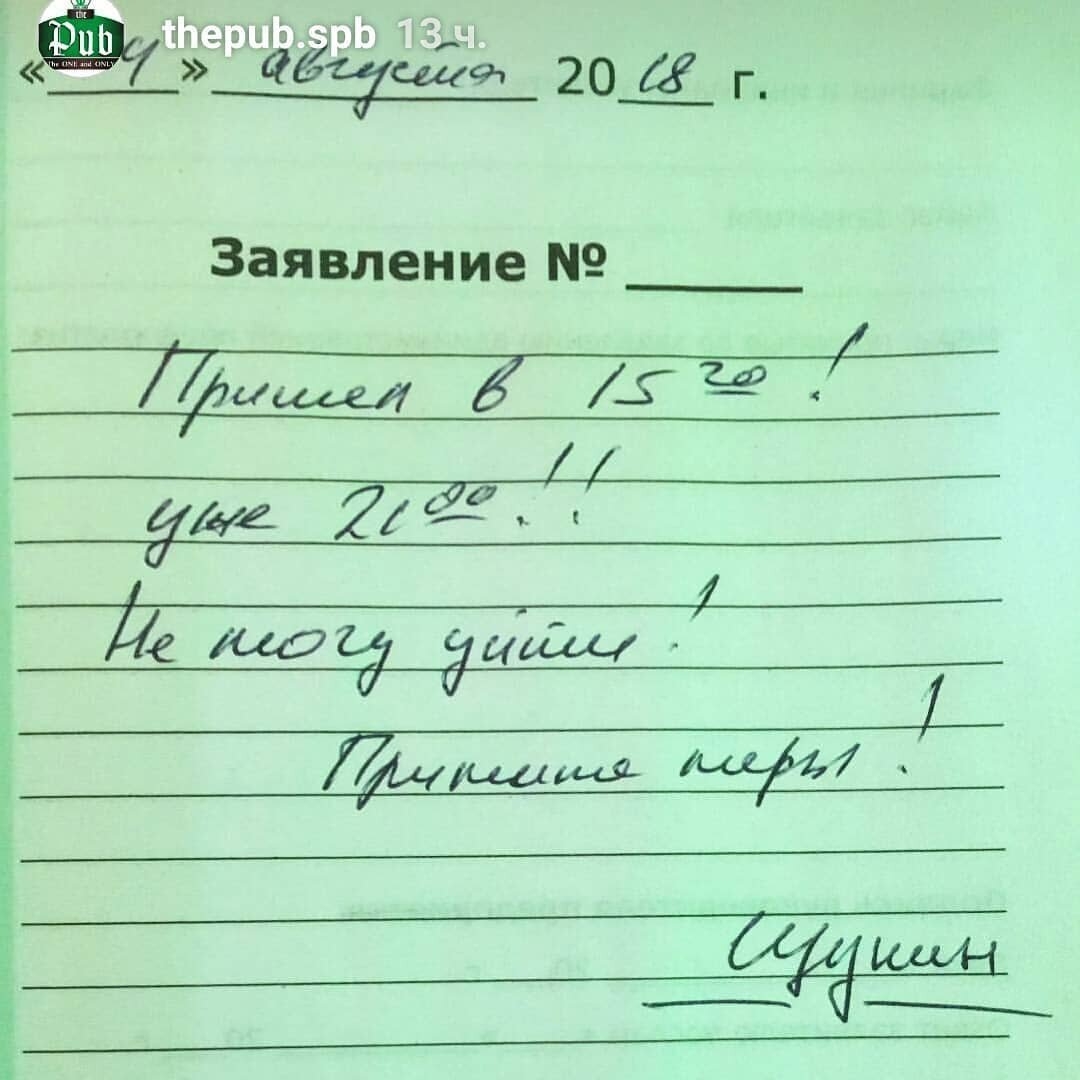 the
Pub
The ONE and ONLY
thepub.spb 13 ч.
« 4 » августа 2018 г.
Заявление №
Пришел в 15 20 !
уже 21 00 !!
Не могу уйти !
Примите меры !
Щукин